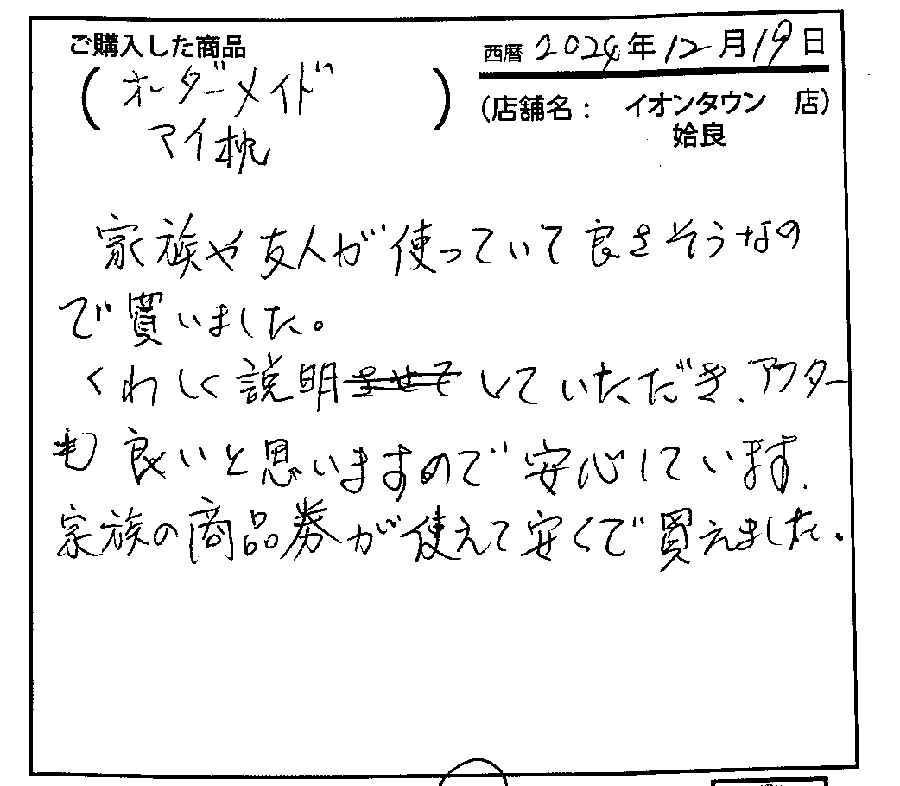 ご購入した商品
西暦 2024年12月19日
(オーダーメイド
マイ枕)
(店舗名： イオンタウン 店)
姶良
家族や友人が使っていて良さそうなの
で買いました。
くわしく説明させてしていただき、アフター
も良いと思いますので安心しています。
家族の商品券が使えて安くで買えました。